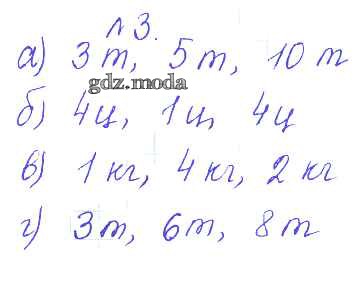 № 3.
а) 3 т, 5 т, 10 т
gdz.moda
б) 4 ц, 1 ц, 4 ц
в) 1 кг, 4 кг, 2 кг
г) 3 т, 6 т, 8 т